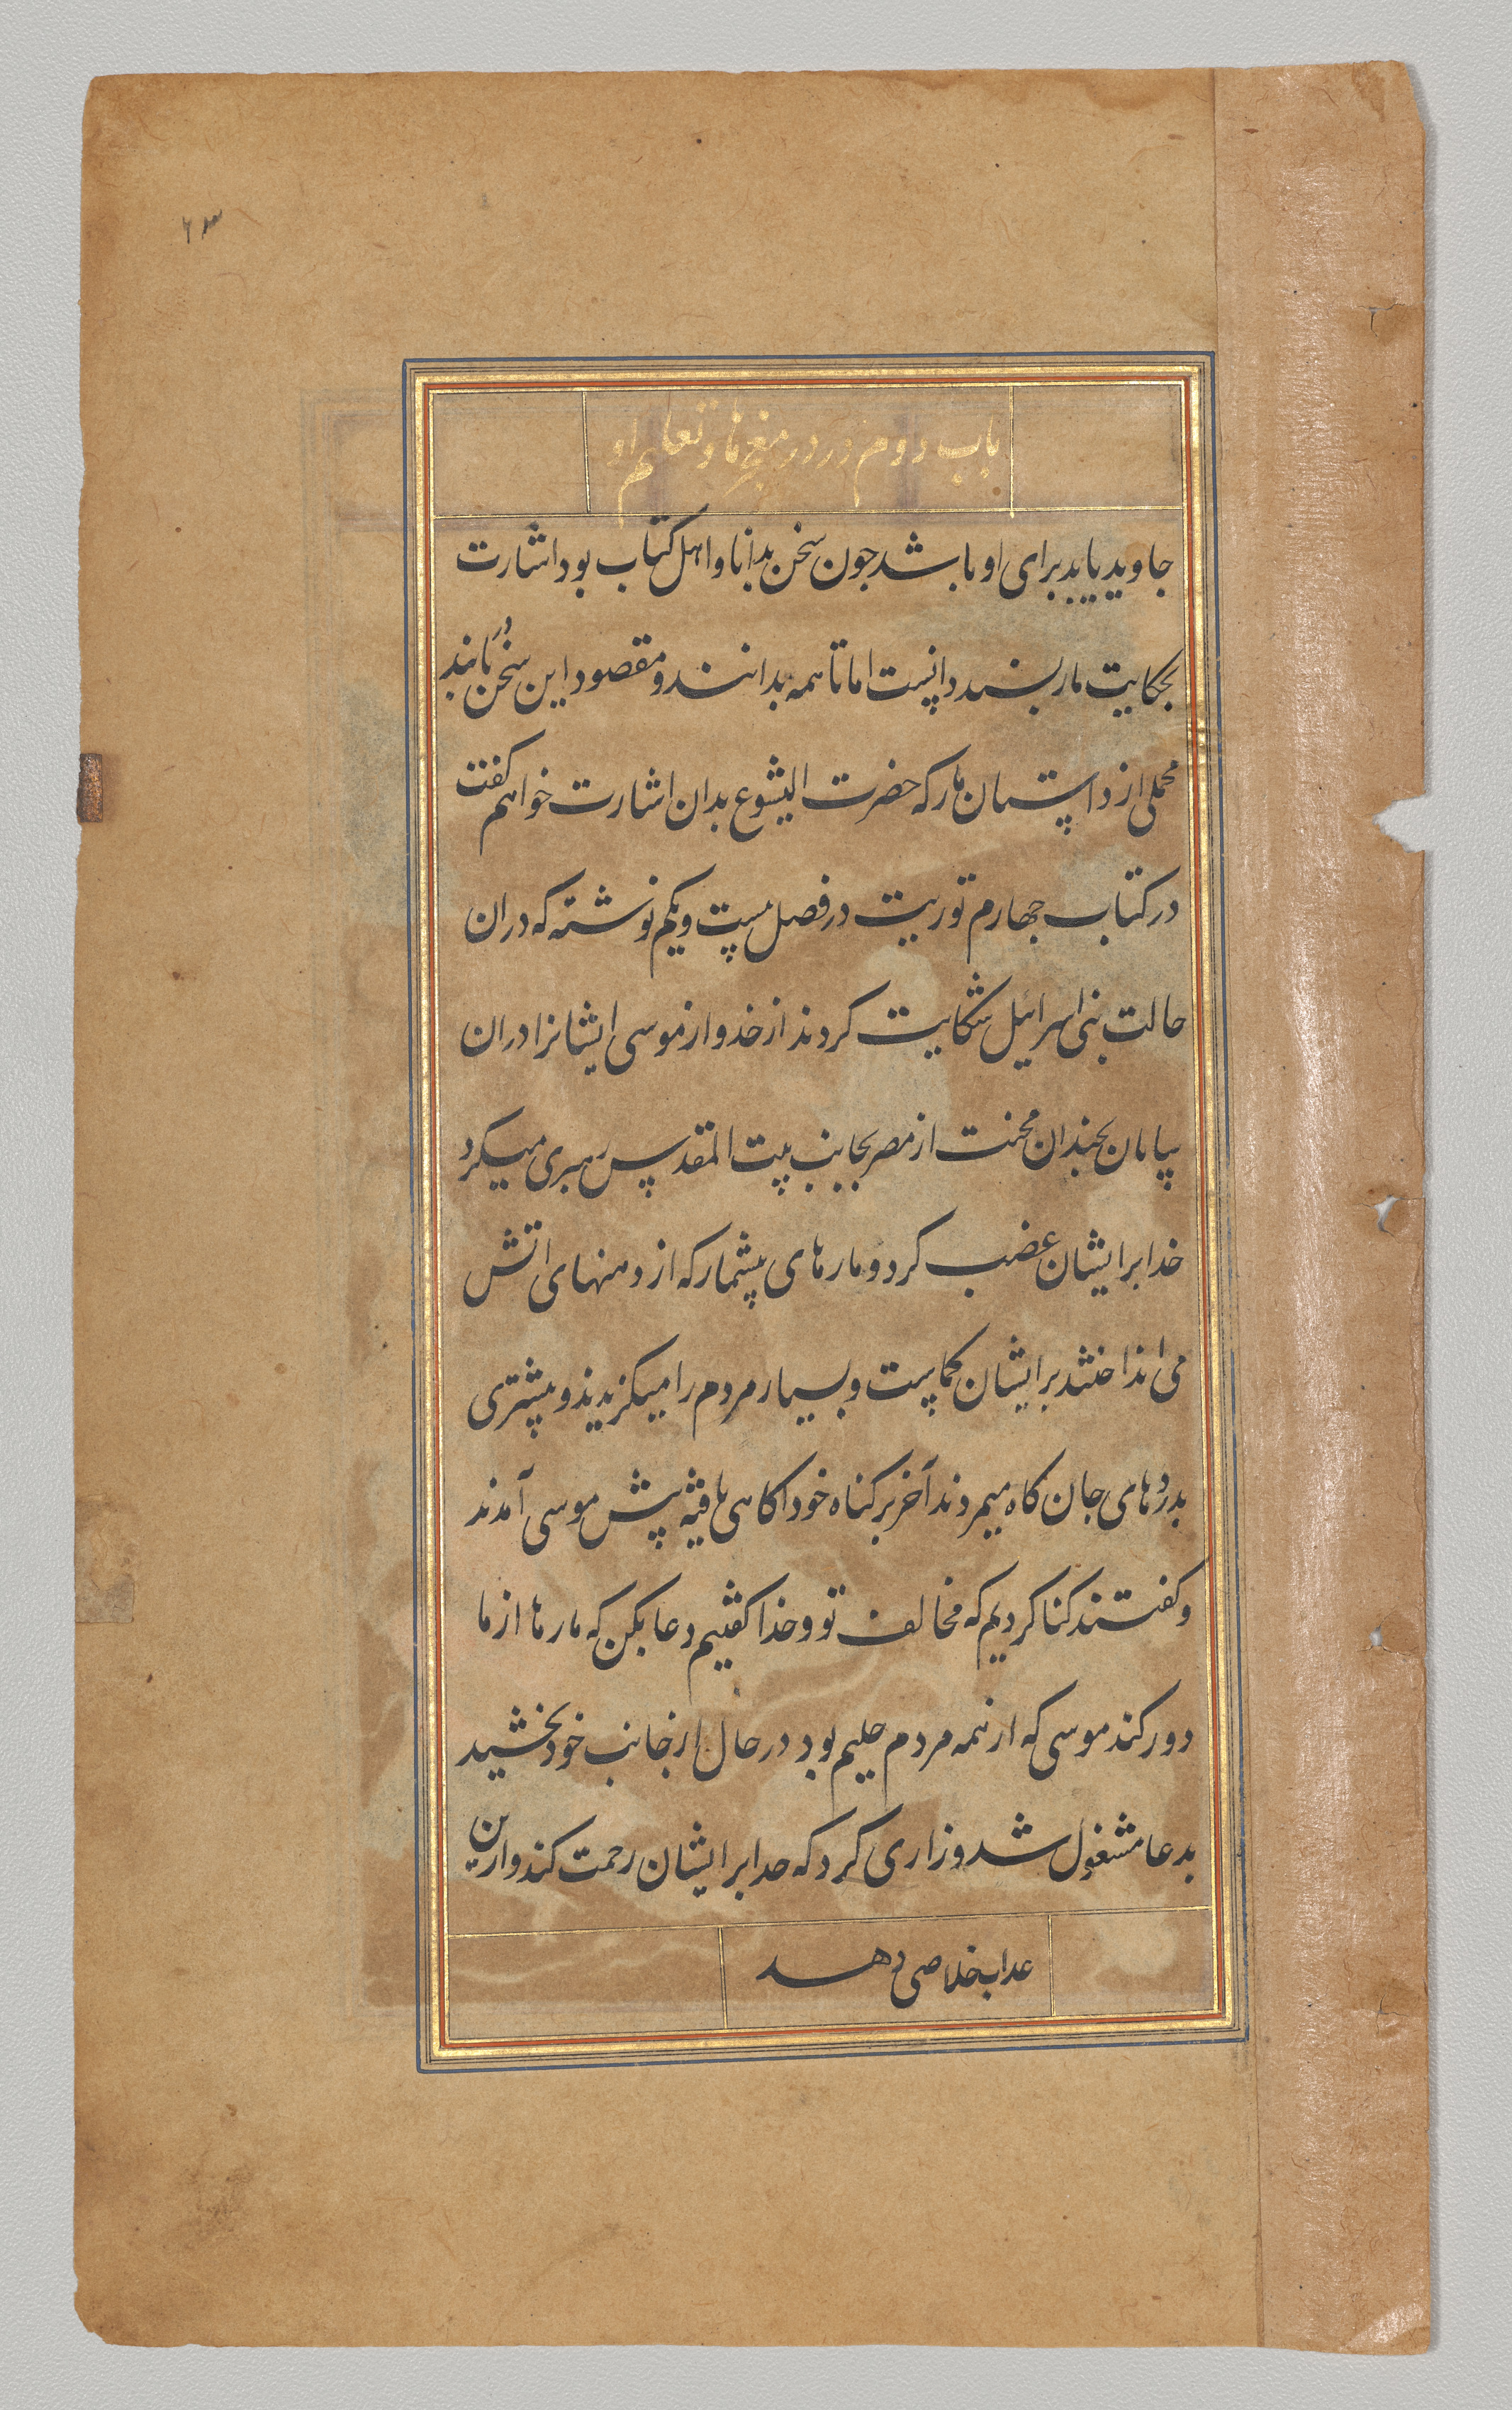 ۶۳
باب دوم در معجزها و تعلیم او
جاوید یابد برای او باشد جون سخن بدانا و اهل کتاب بود اشارت
بحکایت مار بسند دانست اما تا همه بدانند و مقصود این سخن در نمانند
مجملی از داستان مار که حضرت الیشوع بدان اشارت خواهم کفت
در کتاب جهارم توریت در فصل بیست و یکم نوشته که دران
حالت بنی اسرائیل شکایت کردند از خدو از موسی ایشانرا دران
بیابان بجندان محنت از مصر بجانب بیت المقدس رهبری میکرد
خدا بر ایشان غضب کرد و مارهای بیشمار که از دهنهای اتش
می انداختند بر ایشان کماست و بسیار مردم را میکزیدند و بیشتری
بدردهای جان کاه میمردند آخر بر کناه خود اکاهی یافته پیش موسی آمدند
و کفتند کنا کردیم که مخالف تو و خدا کفتیم دعا بکن که مارها از ما
دور کند موسی که از همه مردم حلیم بود در حال از جانب خود بخشید
بدعا مشغول شد و زاری کرد که خدا بر ایشان رحمت کند و ازین
عداب خلاصی دهد